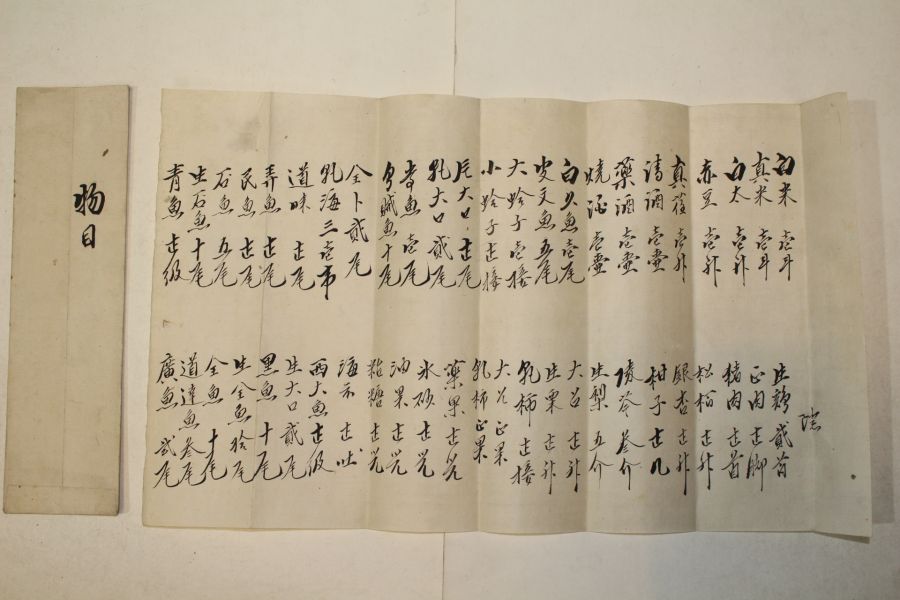 物目
白米 壹斗
真米 壹斗
白太 壹升
赤豆 壹升
真荏 壹升
清酒 壹壷
藥酒 壹壷
燒酒 壹壷
白大魚 壹尾
文魚 五尾
大蛤子 壹接
小蛤子 壹接
片大口 壹尾
乳大口 貳尾
秀魚 壹尾
魚 十尾
全卜 貳尾
乳海三 壹
道味 壹尾
弄魚 壹尾
民魚 壹尾
石魚 五尾
生石魚 十尾
青魚 壹級
生鷄 貳首
正肉 壹脚
猪肉 壹首
松栢 壹升
銀杏 壹升
柑子 壹几
陵苓 叁介
生梨 五介
大召 壹升
生栗 壹升
乳柿 壹接
大召 正果
乳柿 正果
藥果 壹器
氷砂 壹器
油果 壹器
粘糖 壹器
海衣 壹吐
西大魚 壹級
生大口 貳尾
黑魚 十尾
生全魚 拾尾
全魚 十尾
道達魚 叁尾
廣魚 貳尾